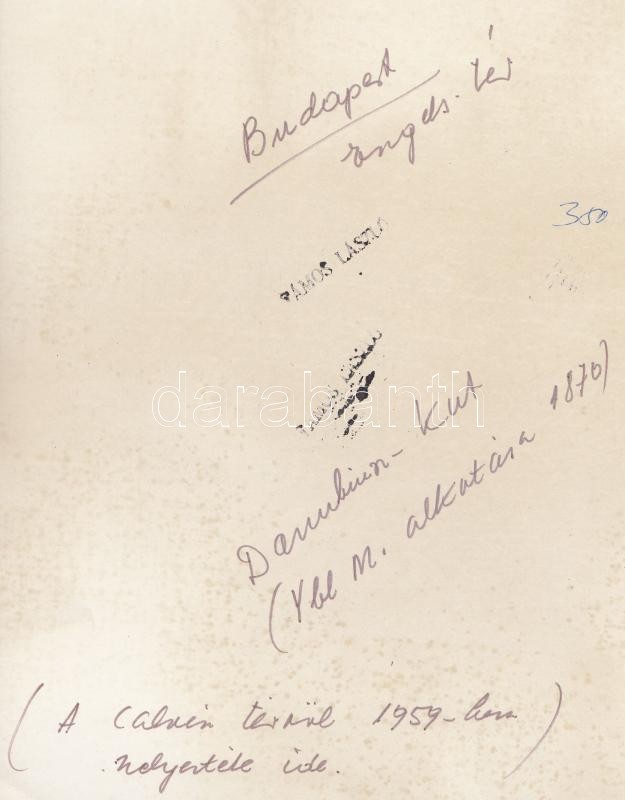 Budapest
Engels-tér
350
RÁMOS LÁSZLÓ
darabanth
Danubius-Kút
(Ybl M. alkotása 1870)
(A Calvin térről 1959-ben
helyezték ide.)